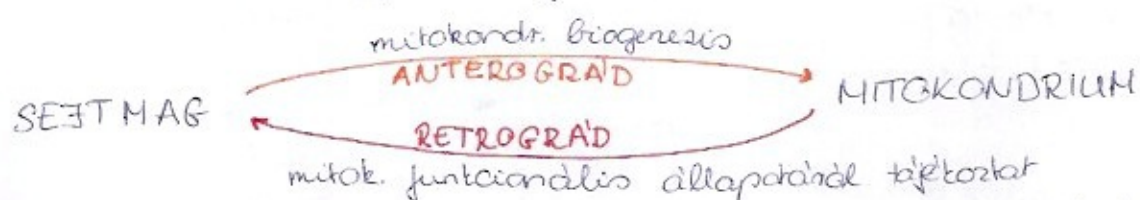 mitokondr. biogenesis
ANTEROGRÁD
SEJTMAG
MITOKONDRIUM
RETROGRÁD
mitok. funkcionális állapotáról tájékoztat